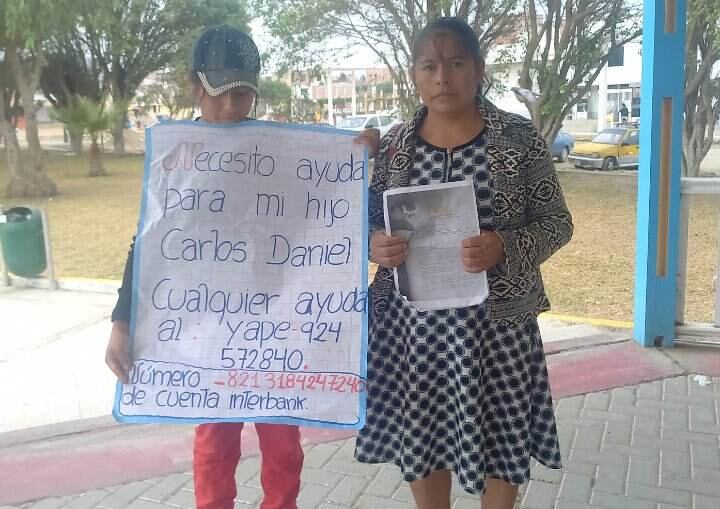 Necesito ayuda
para mi hijo
Carlos Daniel
Cualquier ayuda
al: yape-924
572840.
Número -821 3184247240
de cuenta interbank.